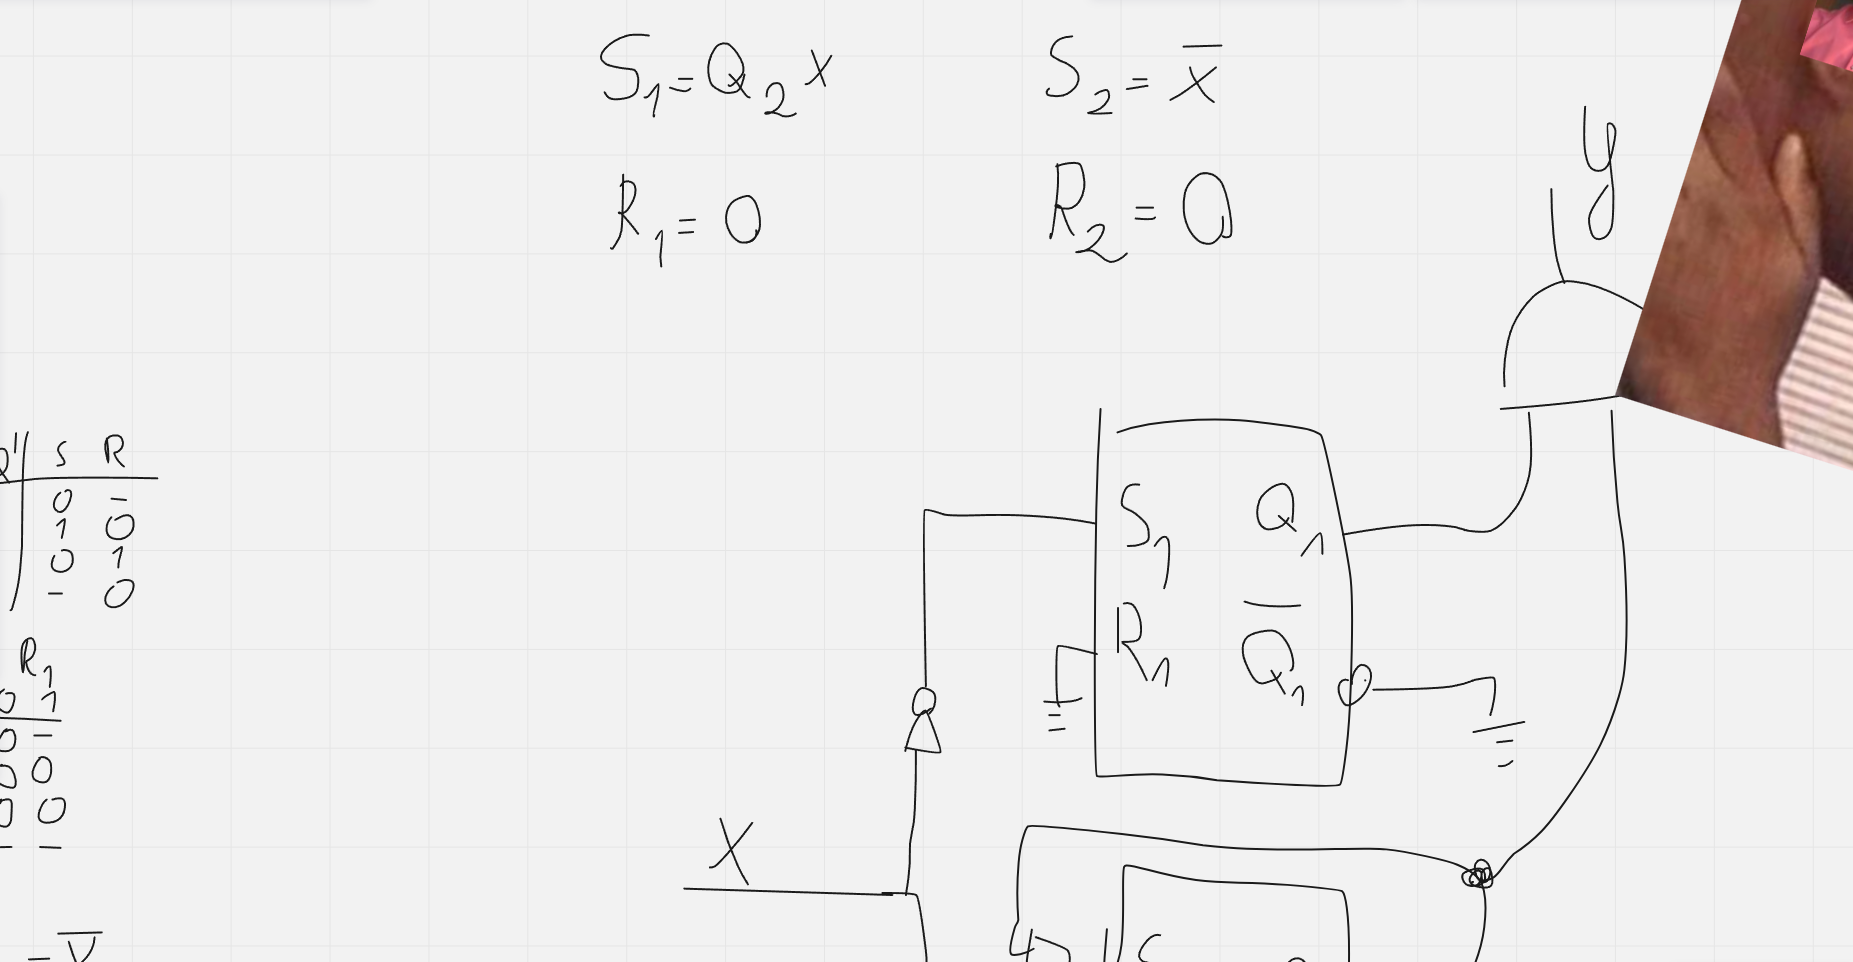 S₁=Q₂x
S₂=x̅
R₁=0
R₂=0
y
S R
0 -
1 0
0 1
- 0
R₁
0 1
0 -
0 0
0 0
- -
S₁ Q₁
R₁ Q̅₁
X